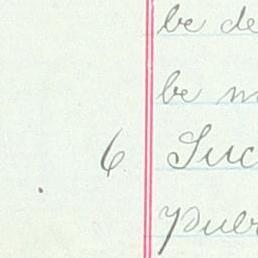 be de
be m
6 Suc
puer